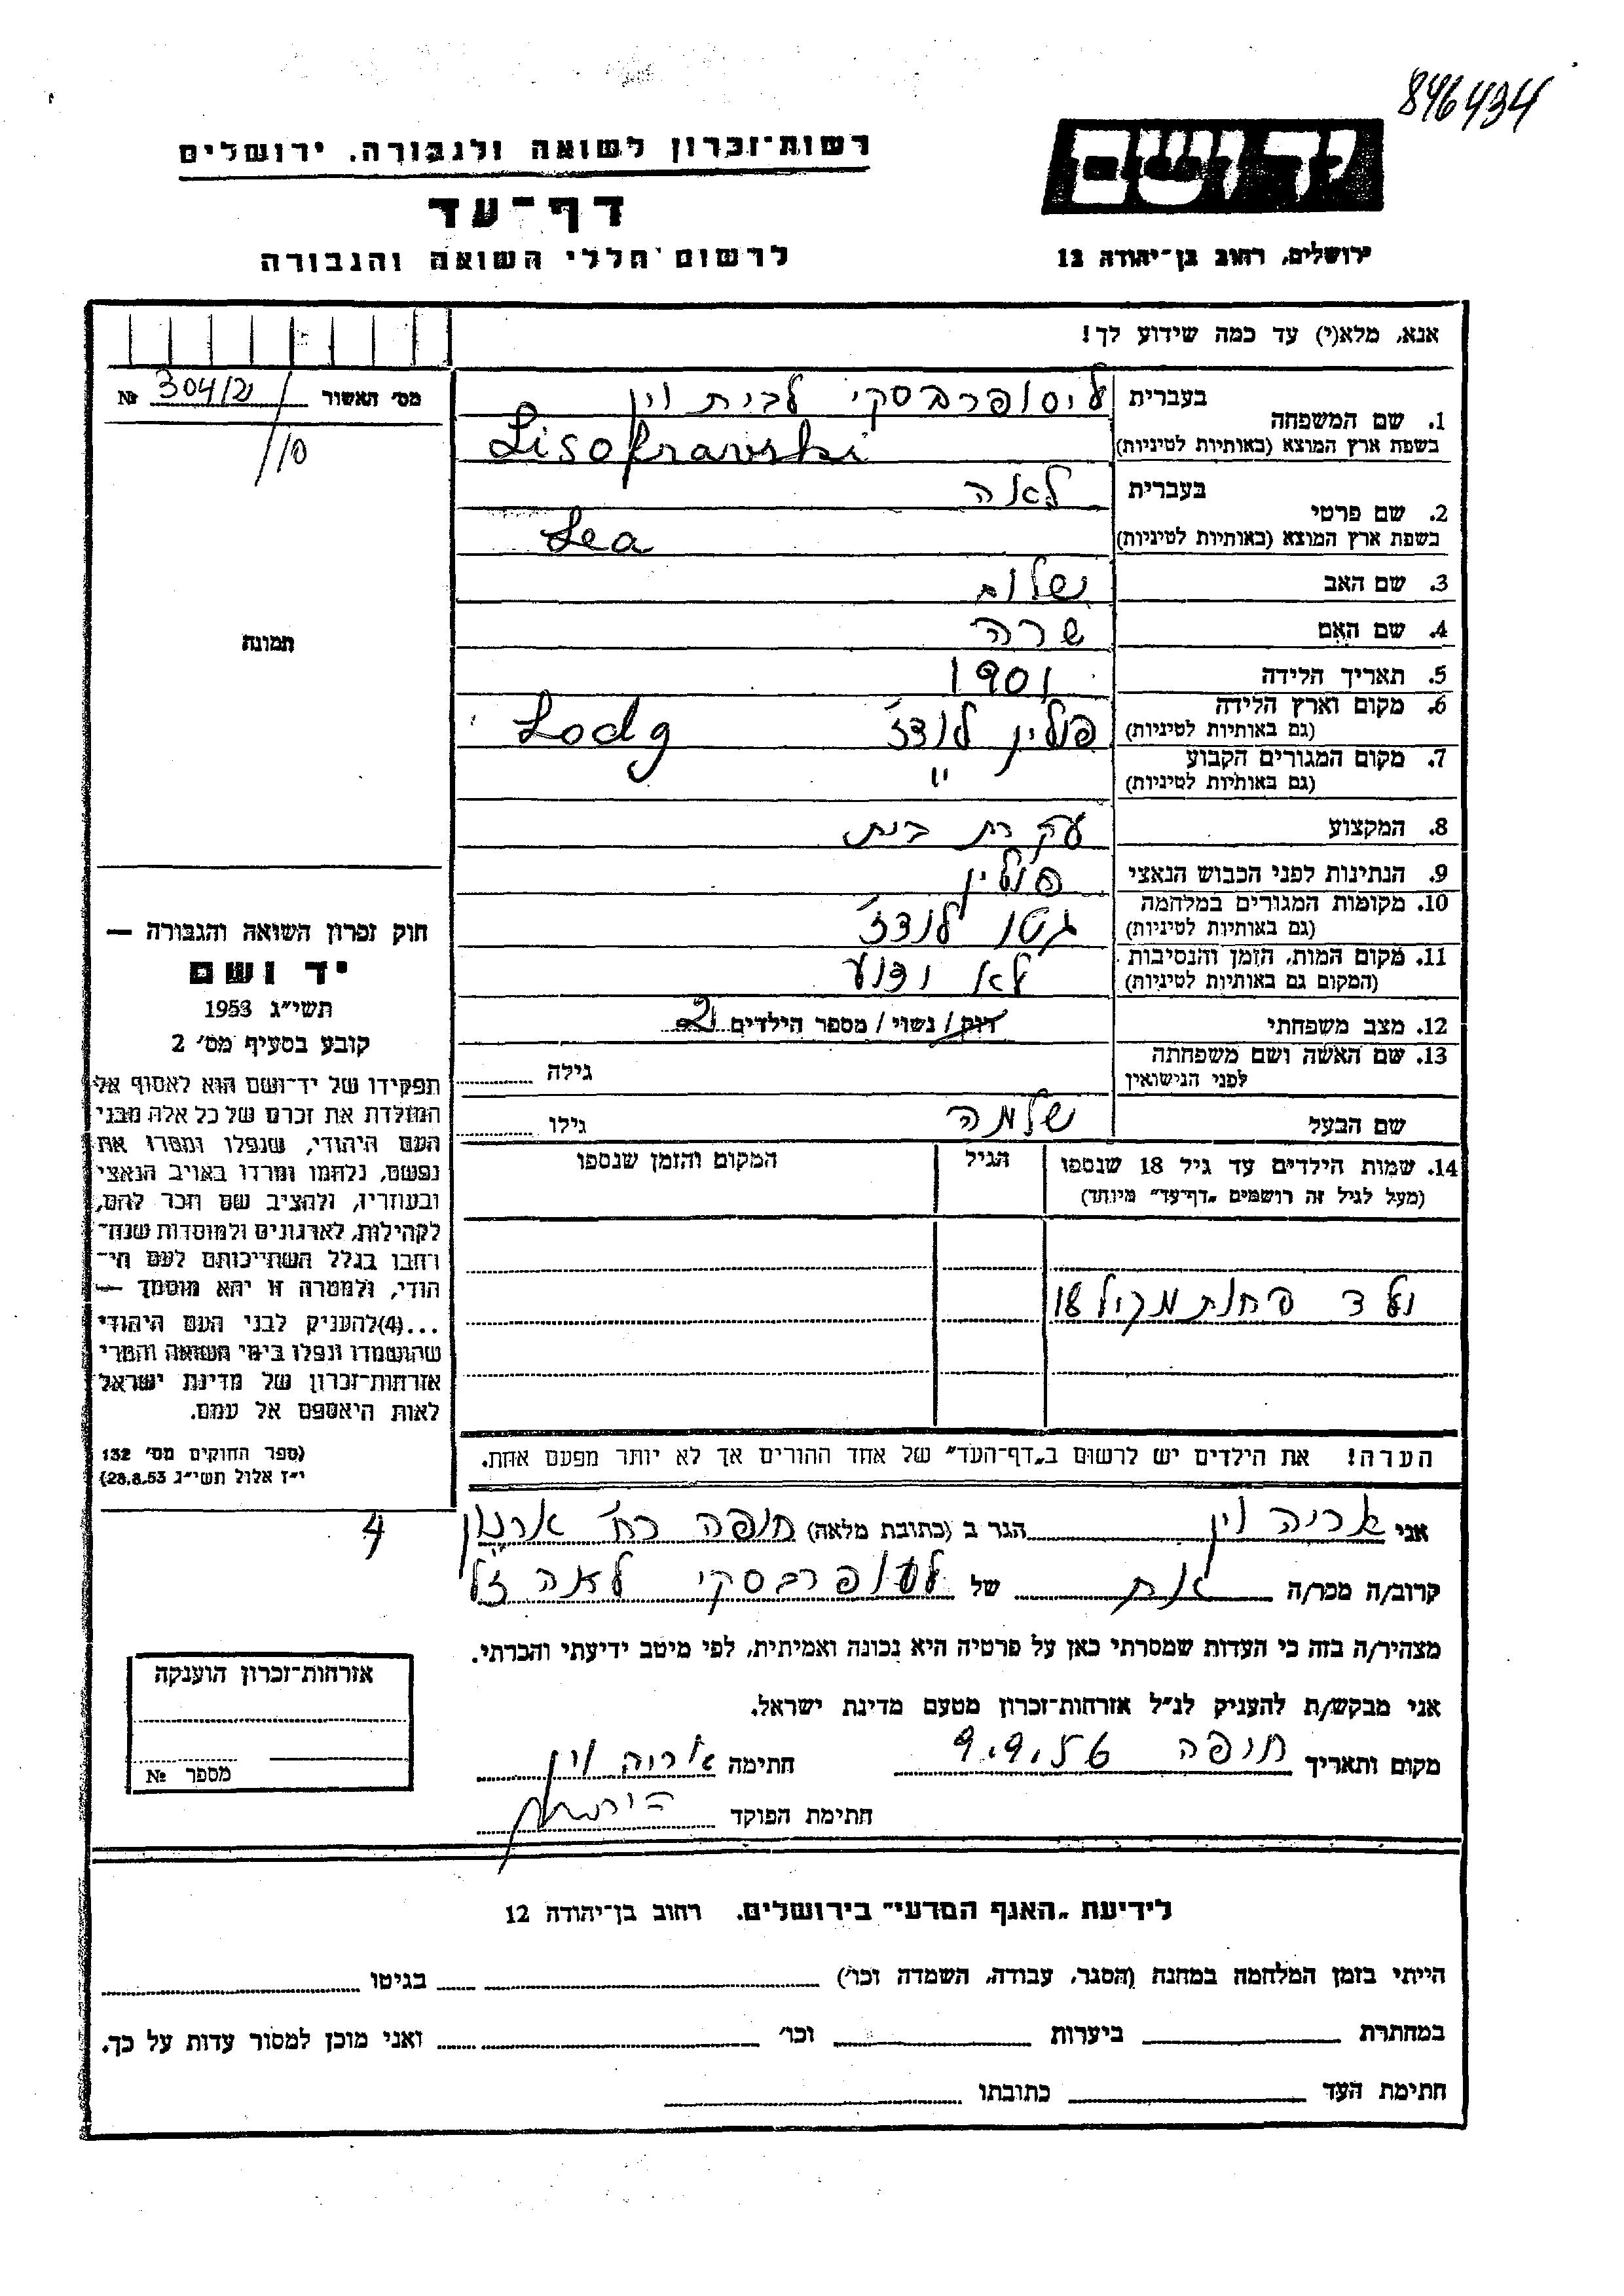 846434
רשות־זכרון לשואה ולגבורה. ירושלים
יד ושם
דף־עד
לרשום חללי השואה והגבורה
ירושלים, רחוב בן־יהודה 12
אנא, מלא(י) עד כמה שידוע לך!
מס׳ האשור 304/2 №
110
תמונה
בעברית ליסופרבסקי לבית וין
1. שם המשפחה
בשפת ארץ המוצא (באותיות לטיניות) Lisofrawski
בעברית לאה
2. שם פרטי
בשפת ארץ המוצא (באותיות לטיניות) Lea
3. שם האב שלום
4. שם האם שרה
5. תאריך הלידה 1901
6. מקום וארץ הלידה פולין לודז׳ Lodz
(גם באותיות לטיניות)
7. מקום המגורים הקבוע "
(גם באותיות לטיניות)
8. המקצוע עקרת בית
9. הנתינות לפני הכבוש הנאצי פולין
10. מקומות המגורים במלחמה גטו לודז׳
(גם באותיות לטיניות)
11. מקום המות, הזמן והנסיבות לא ידוע
(המקום גם באותיות לטיניות)
12. מצב משפחתי רווק/ נשוי/ מספר הילדים 2
13. שם האשה ושם משפחתה גילה
לפני הנישואין
שם הבעל שלמה גילו
14. שמות הילדים עד גיל 18 שנספו הגיל המקום והזמן שנספו
(מעל לגיל זה רושמים „דף־עד״ מיוחד)
ילד פחות מגיל 18
חוק זכרון השואה והגבורה —
יד ושם
תשי״ג 1953
קובע בסעיף מס׳ 2
תפקידו של יד־ושם הוא לאסוף אל
המולדת את זכרם של כל אלה מבני
העם היהודי, שנפלו ומסרו את
נפשם, נלחמו ומרדו באויב הנאצי
ובעוזריו, ולהציב שם וזכר להם,
לקהילות, לארגונים ולמוסדות שנח־
רחבו בגלל השתייכותם לעם הי־
הודי, ולמטרה זו יהא מוסמך —
...(4)להעניק לבני העם היהודי
שהושמדו ונפלו בימי השואה והמרי
אזרחות־זכרון של מדינת ישראל
לאות היאספם אל עמם.
(ספר החוקים מס׳ 132
י״ז אלול תשי״ג 28.8.53)
הערה! את הילדים יש לרשום ב„דף־העד״ של אחד ההורים אך לא יותר מפעם אחת.
אני אריה וין הגר ב (כתובת מלאה) חיפה רח׳ 4
קרוב/ה מכר/ה אח של ליסופרבסקי לאה ז״ל
מצהיר/ה בזה כי העדות שמסרתי כאן על פרטיה היא נכונה ואמיתית, לפי מיטב ידיעתי והכרתי.
אני מבקש/ת להעניק לנ״ל אזרחות־זכרון מטעם מדינת ישראל.
מקום ותאריך חיפה 9.9.56 חתימה אריה וין
חתימת הפוקד
אזרחות־זכרון הוענקה
מספר №
לידיעת „האגף המדעי״ בירושלים. רחוב בן־יהודה 12
הייתי בזמן המלחמה במחנה (הסגר, עבודה, השמדה וכו׳) בגיטו
במחתרת ביערות וכו׳ ואני מוכן למסור עדות על כך.
חתימת העד כתובתו